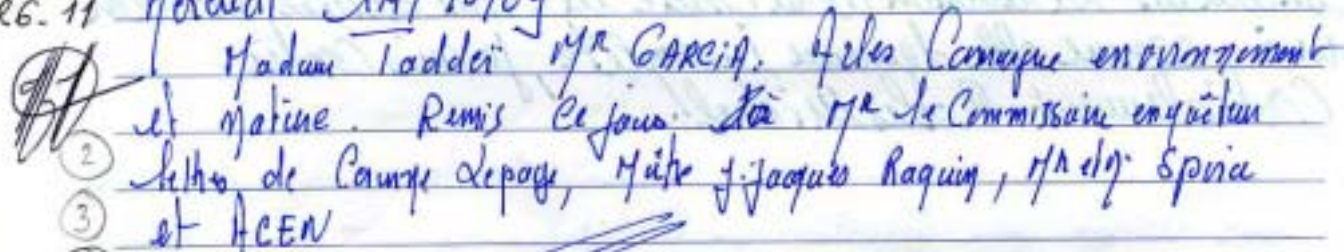 26.11 Mercredi
Madame Taddeï Mr GARCIA. Arles Camargue environnement
et Nature. Remis ce jour à Mr le Commissaire enquêteur
2 lettres de Corinne Lepage, Maître J. Jacques Raquin, Mr et Spira
3 et ACEN